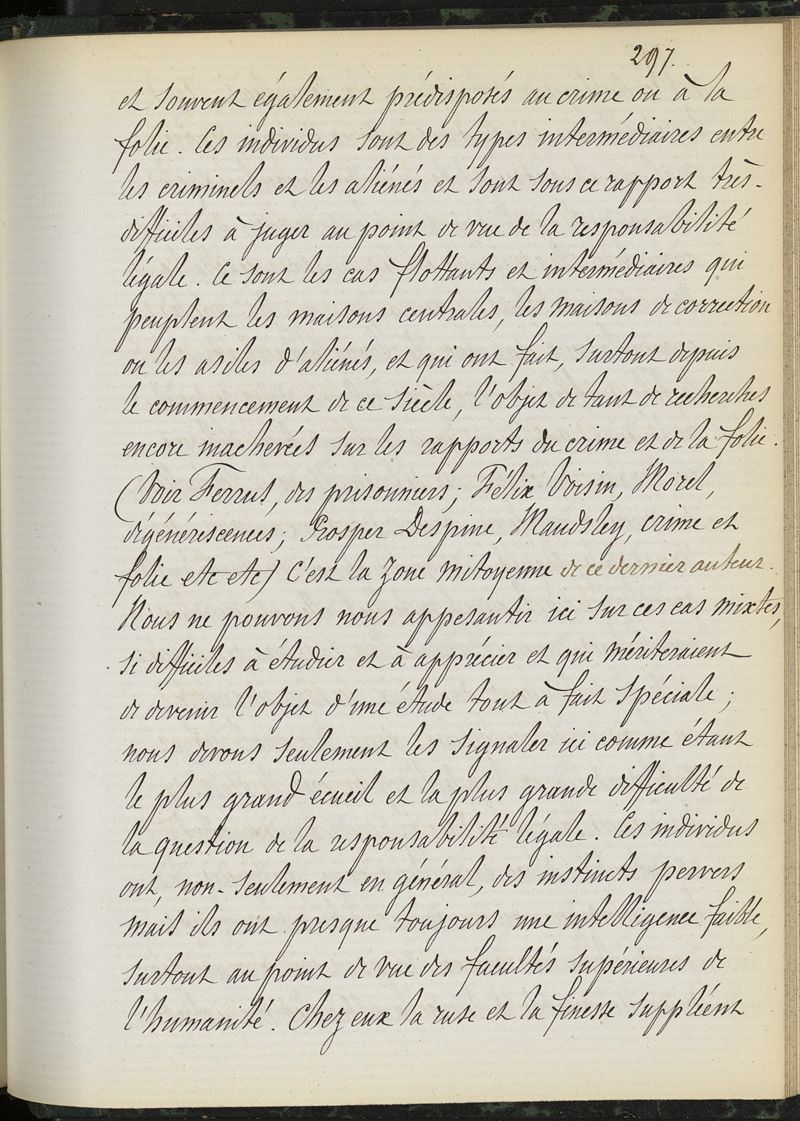 297.
et souvent également prédisposés au crime ou à la
folie. Ces individus sont des types intermédiaires entre
les criminels et les aliénés et sont sous ce rapport très-
difficiles à juger au point de vue de la responsabilité
légale. Ce sont les cas flottants et intermédiaires qui
peuplent les maisons centrales, les maisons de correction
ou les asiles d'aliénés, et qui ont fait, surtout depuis
le commencement de ce siècle, l'objet de tant de recherches
encore inachevées sur les rapports du crime et de la folie.
(Voir Ferrus, des prisonniers; Félix Voisin, Morel,
dégénérescences; Prosper Despine, Maudsley, crime et
folie etc etc) C'est la zone mitoyenne de ce dernier auteur.
Nous ne pouvons nous appesantir ici sur ces cas mixtes,
si difficiles à étudier et à apprécier et qui mériteraient
de devenir l'objet d'une étude tout à fait spéciale;
nous devons seulement les signaler ici comme étant
le plus grand écueil et la plus grande difficulté de
la question de la responsabilité légale. Ces individus
ont, non-seulement en général, des instincts pervers
mais ils ont presque toujours une intelligence faible,
surtout au point de vue des facultés supérieures de
l'humanité. Chez eux la ruse et la finesse suppléent